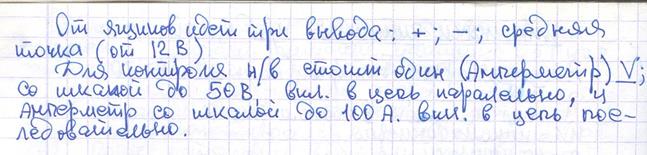 От ящиков идет три вывода: +; -; средняя
точка (от 12 В)
Для контроля н/в стоит один (Амперметр) V;
со шкалой до 50В, вкл. в цепь паралельно, и
Амперметр со шкалой до 100А. вкл. в цепь пос-
ледовательно.